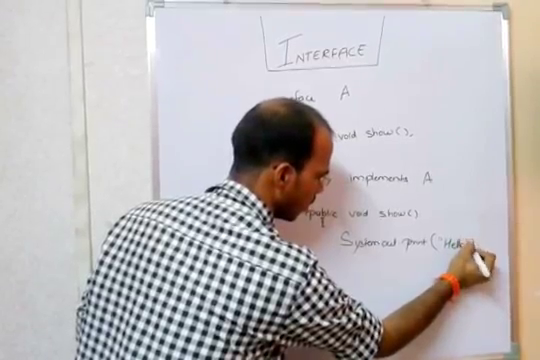 INTERFACE
face A
void show();
implements A
public void show()
System.out.print("Hello